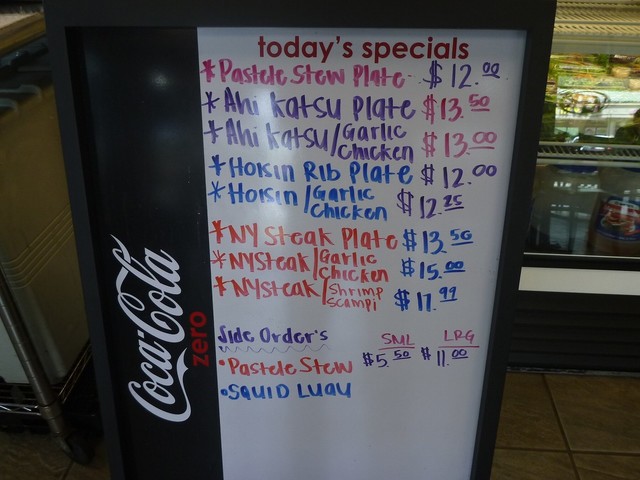 today's specials
* Pastele Stew Plate $12.00
* Ahi Katsu Plate $13.50
* Ahi Katsu/Garlic Chicken $13.00
* Hoisin Rib Plate $12.00
* Hoisin/Garlic Chicken $12.25
* NY Steak Plate $13.50
* NY Steak/Garlic Chicken $15.00
* NY Steak/Shrimp Scampi $17.99
Side Order's SML LRG
• Pastele Stew $5.50 $11.00
• SQUID LUAU
Coca-Cola
zero